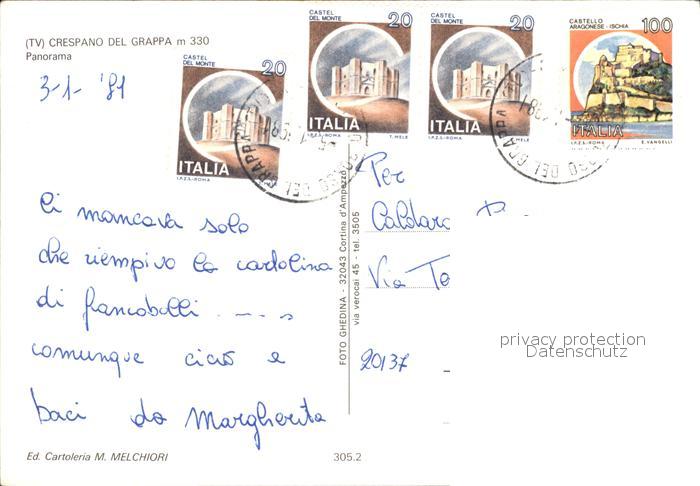 (TV) CRESPANO DEL GRAPPA m 330
Panorama
3-1-'81
CASTEL
DEL MONTE
20
ITALIA
I.P.Z.S.-ROMA
CASTEL
DEL MONTE
20
ITALIA
I.P.Z.S.-ROMA T. MELE
CASTEL
DEL MONTE
20
ITALIA
I.P.Z.S.-ROMA
CASTELLO
ARAGONESE - ISCHIA
100
ITALIA
I.P.Z.S.-ROMA E. VANGELLI
DEL GRAPPA
DEL GRAPPA
Ci mancava solo
che riempivo la cartolina
di francobolli . _ _ _ s
comunque ciao e
baci da Margherita
FOTO GHEDINA - 32043 Cortina d'Ampezzo
via verocai 45 - tel. 3505
Per
Caldara
Via Te
20137
privacy protection
Datenschutz
Ed. Cartoleria M. MELCHIORI
305.2